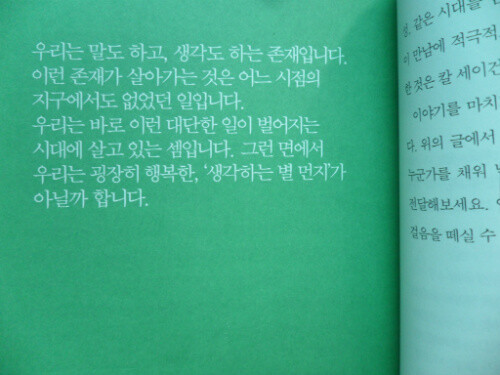 우리는 말도 하고, 생각도 하는 존재입니다.
이런 존재가 살아가는 것은 어느 시점의
지구에서도 없었던 일입니다.
우리는 바로 이런 대단한 일이 벌어지는
시대에 살고 있는 셈입니다. 그런 면에서
우리는 굉장히 행복한, ‘생각하는 별 먼지’가
아닐까 합니다.
같은 시대를
이 만남에 적극적
한 것은 칼 세이건
이야기를 마치
다. 위의 글에서
누군가를 채워
전달해보세요.
걸음을 떼실 수